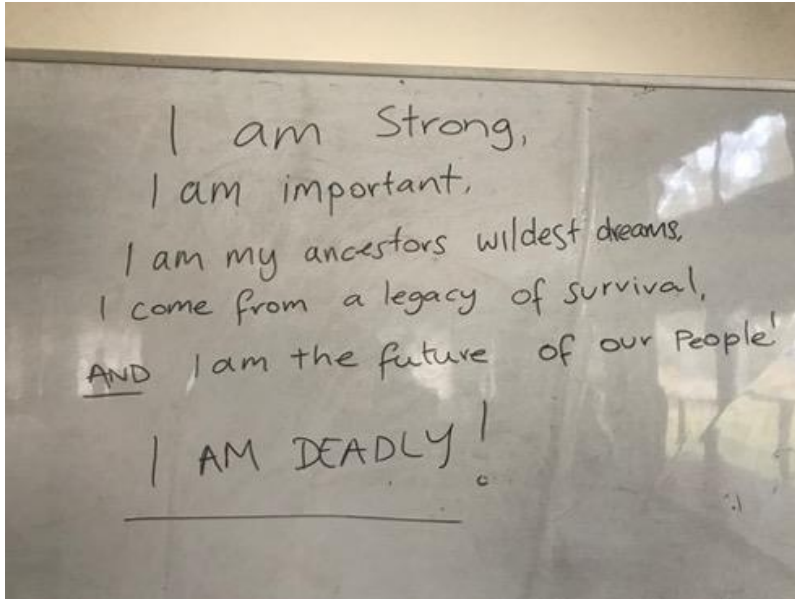 I am Strong,
I am important,
I am my ancestors wildest dreams,
I come from a legacy of survival,
AND I am the future of our People!
I AM DEADLY!